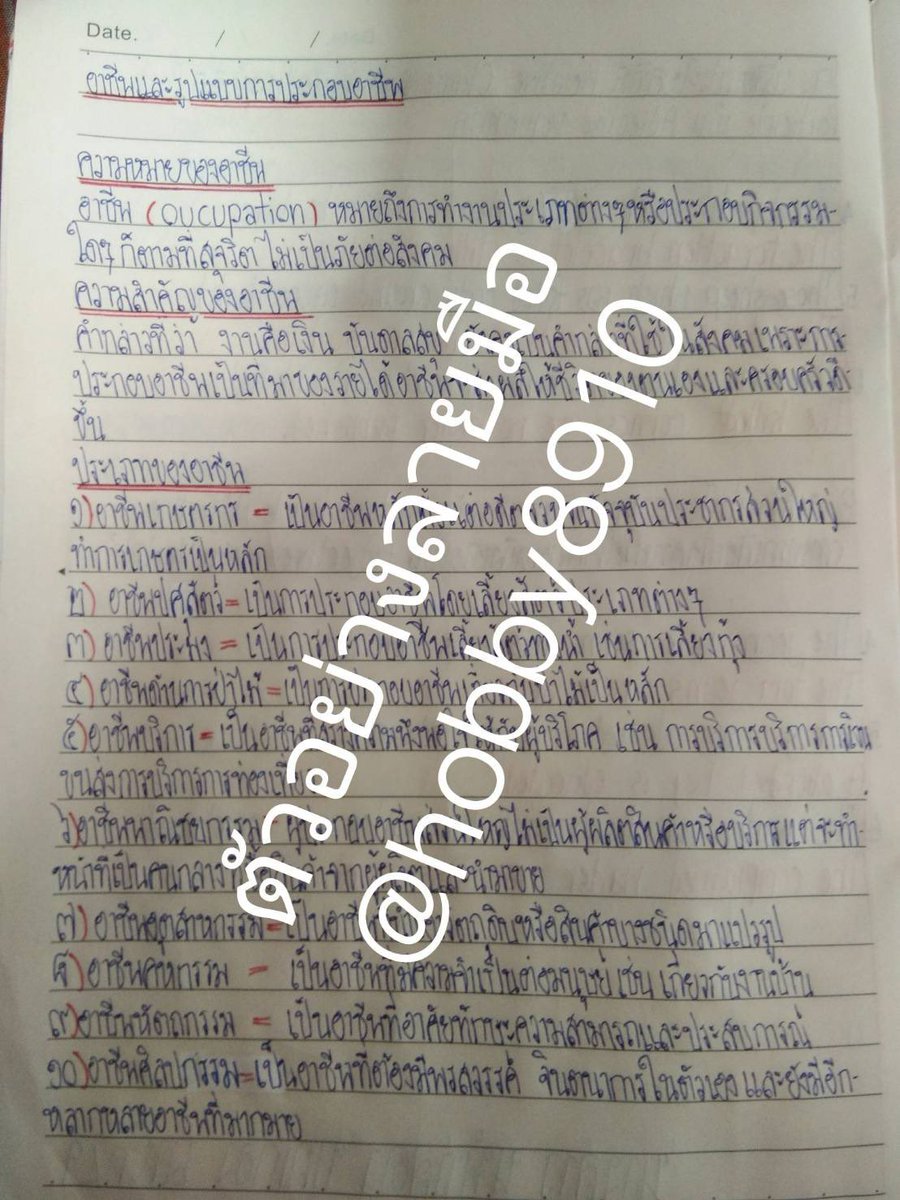 Date. / /
อาชีพและรูปแบบการประกอบอาชีพ
ความหมายของอาชีพ
อาชีพ (oucupation) หมายถึงการทำงานประเภทต่างๆหรือประกอบกิจกรรม-
ใดๆ ก็ตามที่สุจริต ไม่เป็นภัยต่อสังคม
ความสำคัญของอาชีพ
คำกล่าวที่ว่า งานคือเงิน ที่ใช้ในสังคมเพราะการ-
ประกอบอาชีพเป็นที่มาของรายได้ ของตนเองและครอบครัวดี-
ขึ้น
ประเภทของอาชีพ
๑) อาชีพเกษตรกร = เป็นอาชีพ ประชากรส่วนใหญ่
ทำการเกษตรเป็นหลัก
๒) อาชีพปศุสัตว์ = เป็นการประกอบอาชีพโดยเลี้ยงสัตว์ประเภทต่างๆ
๓) อาชีพประมง = เป็นการประกอบอาชีพเลี้ยงสัตว์ เช่นการเลี้ยงกุ้ง
๔) อาชีพด้านการป่าไม้ = เป็นการประกอบอาชีพ ป่าไม้เป็นหลัก
๕) อาชีพบริการ = เป็นอาชีพ ผู้บริโภค เช่น การบริการบริการการเงิน
ขนส่งการบริการการท่องเที่ยว
๖) อาชีพพาณิชยกรรม ผู้ประกอบอาชีพส่วนใหญ่ไม่เป็นผู้ผลิตสินค้าหรือบริการแต่จะทำ-
หน้าที่เป็นคนกลาง สินค้าจากผู้ผลิตและนำมาขาย
๗) อาชีพอุตสาหกรรม = เป็นอาชีพ วัตถุดิบหรือสินค้าบางชนิดมาแปรรูป
๘) อาชีพคหกรรม = เป็นอาชีพที่มีความจำเป็นต่อมนุษย์ เช่น เกี่ยวกับงานบ้าน
๙) อาชีพหัตถกรรม = เป็นอาชีพที่อาศัยทักษะความสามารถและประสบการณ์
๑๐) อาชีพศิลปกรรม = เป็นอาชีพที่ต้องมีพรสวรรค์ จินตนาการในตัวเอง และยังมีอีก-
หลากหลายอาชีพที่มากมาย
ตัวอย่างลายมือ
@hobby8910